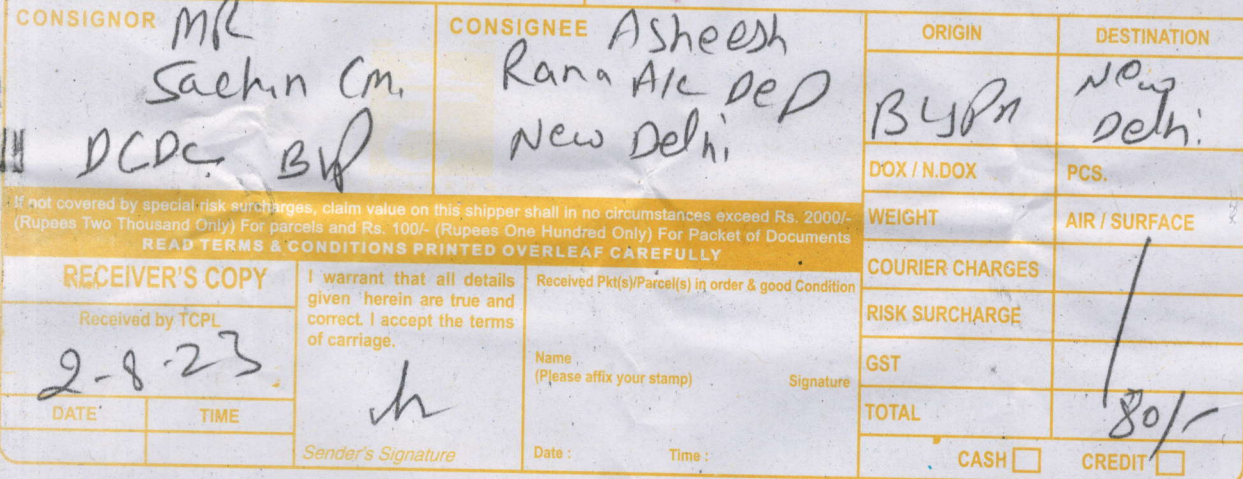 CONSIGNOR MR
Sachin Cm.
DCDC BVP
CONSIGNEE Asheesh
Rana A/c Dep
New Delhi
ORIGIN
DESTINATION
New
Delhi
DOX / N.DOX
PCS.
WEIGHT
AIR / SURFACE
If not covered by special risk surcharges, claim value on this shipper shall in no circumstances exceed Rs. 2000/-
(Rupees Two Thousand Only) For parcels and Rs. 100/- (Rupees One Hundred Only) For Packet of Documents
READ TERMS & CONDITIONS PRINTED OVERLEAF CAREFULLY
RECEIVER'S COPY
Received by TCPL
2-8-23
DATE
TIME
I warrant that all details
given herein are true and
correct. I accept the terms
of carriage.
Sender's Signature
Received Pkt(s)/Parcel(s) in order & good Condition
Name
(Please affix your stamp)
Signature
Date :
Time :
COURIER CHARGES
RISK SURCHARGE
GST
TOTAL
80/-
CASH
CREDIT